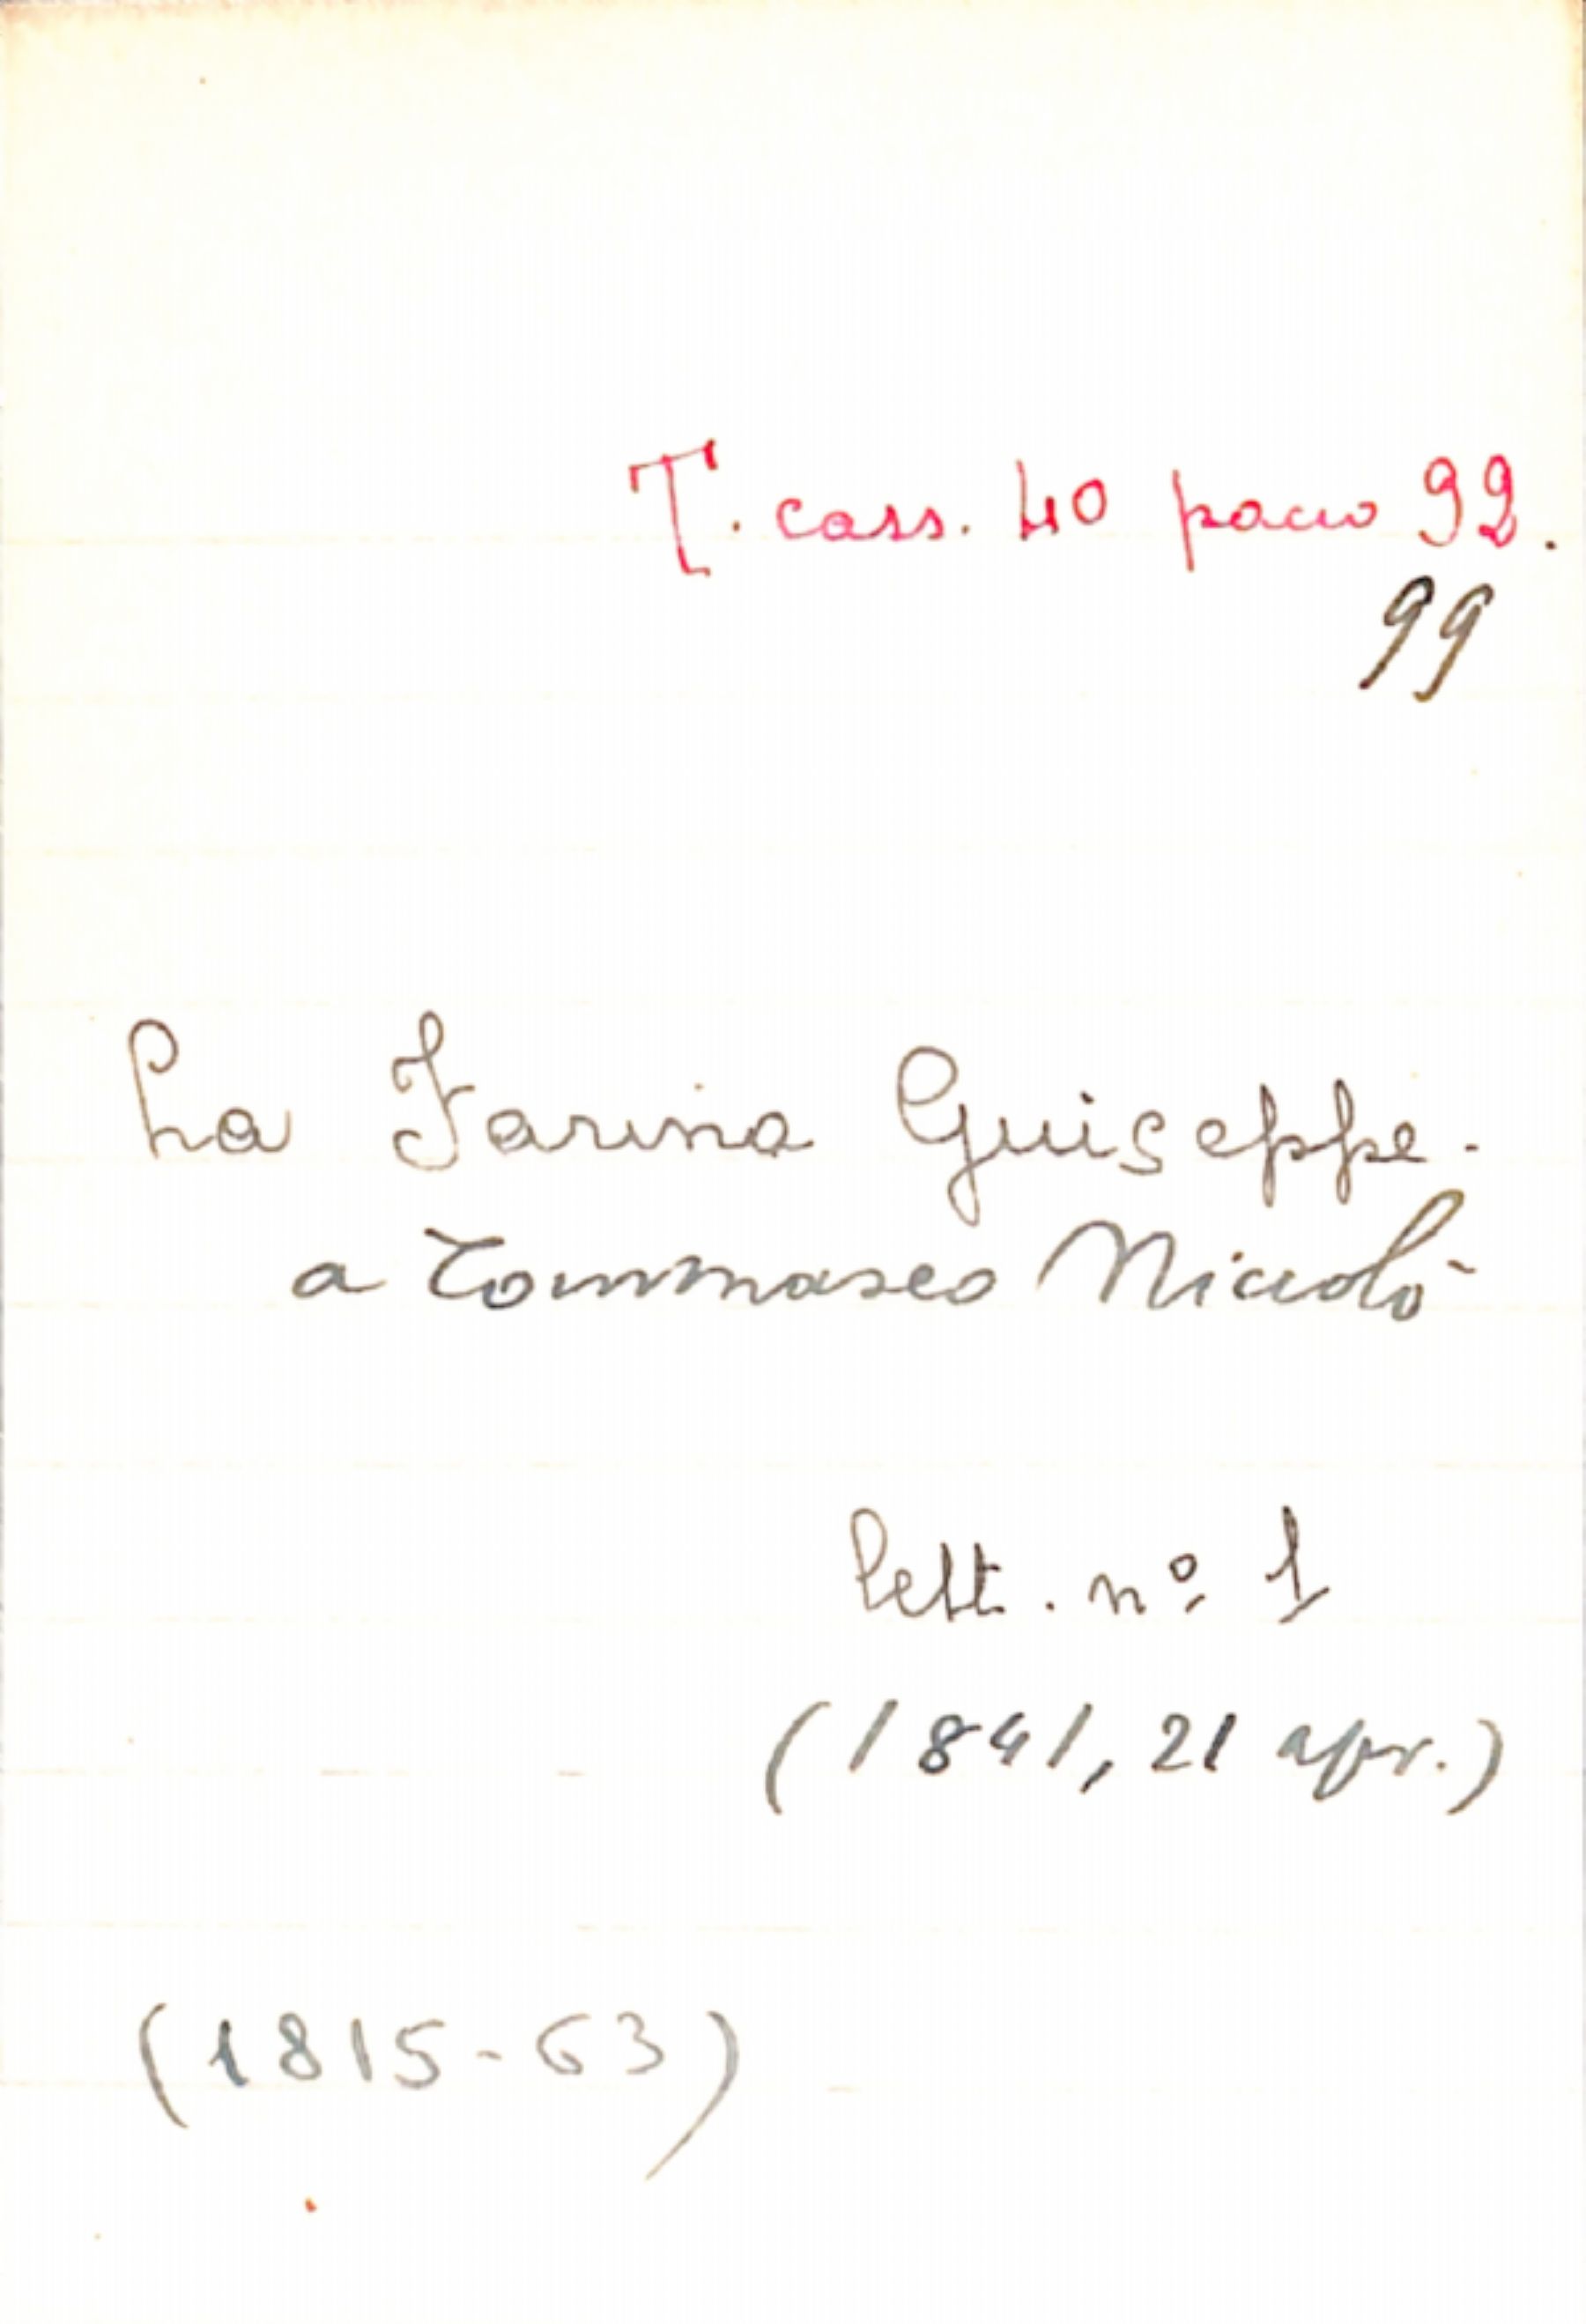 T. cass. 40 pacco 92.
99
La Farina Giuseppe.
a Tommaseo Niccolò
lett. nº 1
(1841, 21 apr.)
(1815-63)